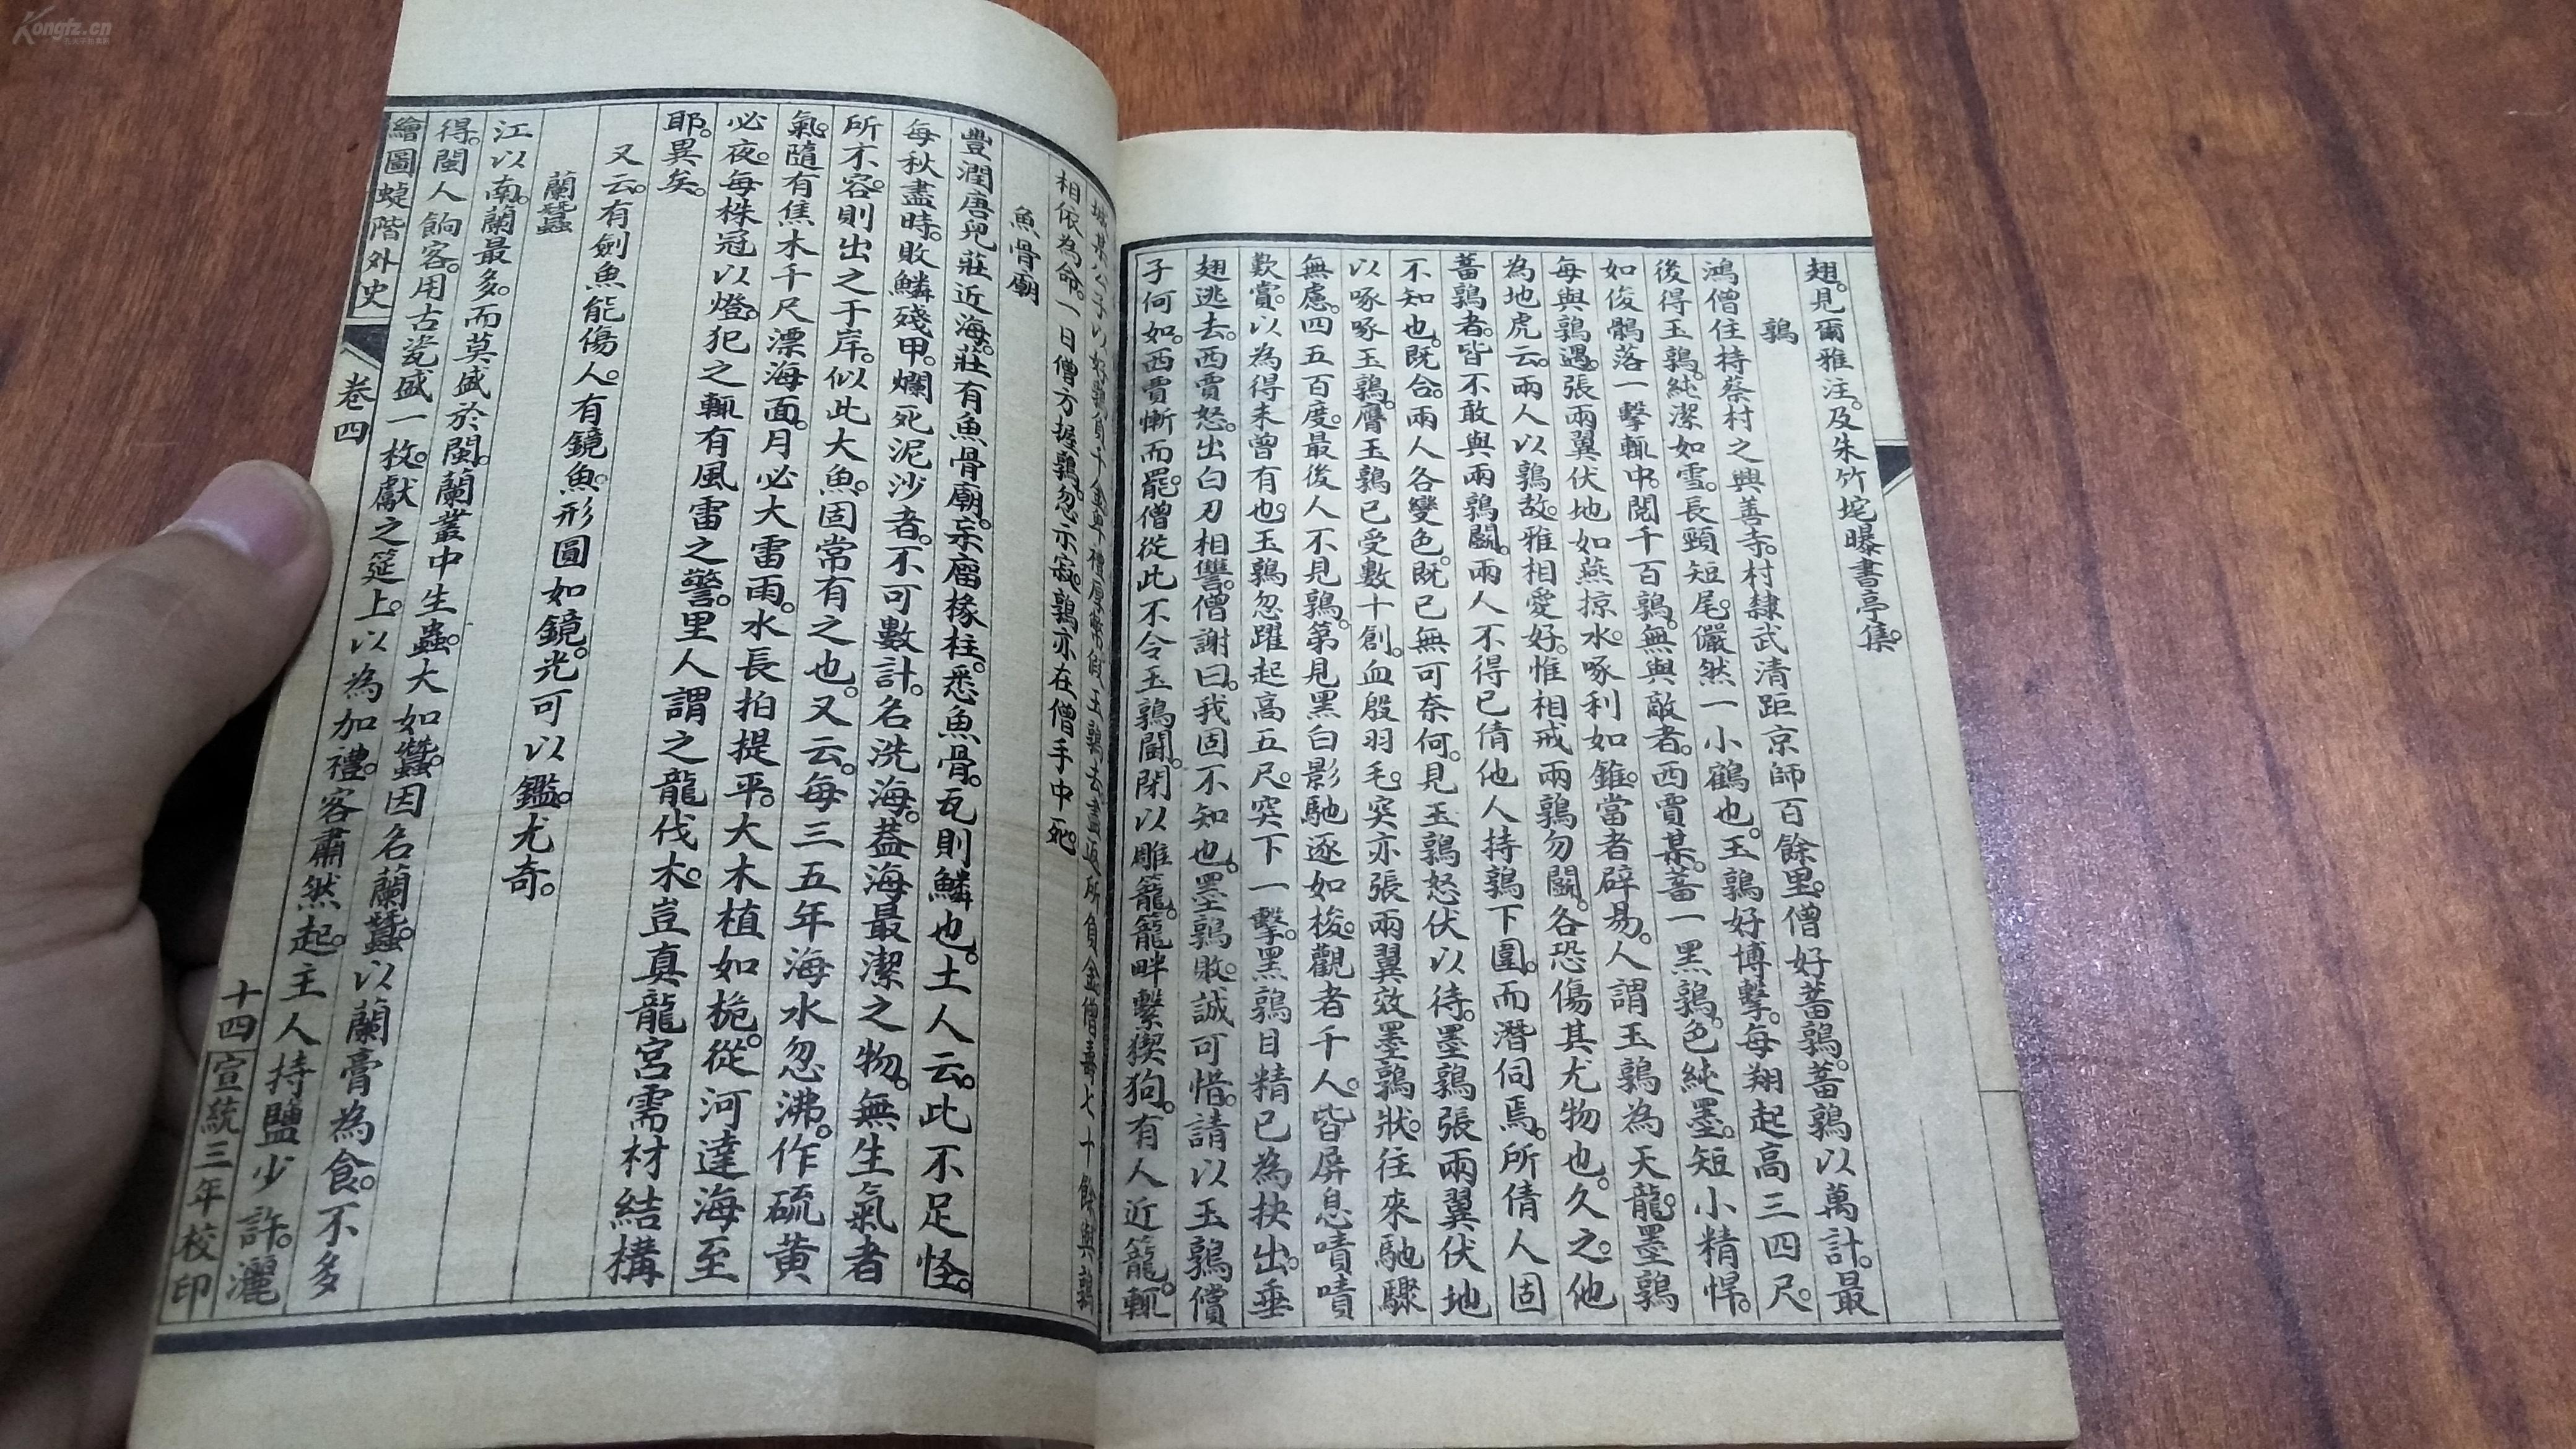 Kongfz.cn
翅。見爾雅注。及朱竹垞曝書亭集。
鶉
鴻僧住持蔡村之興善寺。村隸武清距京師百餘里。僧好蓄鶉。蓄鶉以萬計。最
後得玉鶉。純潔如雪。長頸短尾。儼然一小鶴也。玉鶉好博擊。每翔起高三四尺。
如俊鶻落一擊輒中。閱千百鶉。無與敵者。西賈某。蓄一黑鶉。色純墨。短小精悍。
每與鶉遇。張兩翼伏地如燕掠水。啄利如錐。當者辟易。人謂玉鶉為天龍。墨鶉
為地虎云。兩人以鶉故。雅相愛好。惟相戒兩鶉勿鬬。各恐傷其尤物也。久之。他
蓄鶉者。皆不敢與兩鶉鬬。兩人不得已倩他人持鶉下圍。而潛伺焉。所倩人固
不知也。既合。兩人各變色。既已無可奈何。見玉鶉怒伏以待。墨鶉張兩翼伏地
以啄啄玉鶉。膺玉鶉已受數十創。血殷羽毛。突亦張兩翼效墨鶉狀。往來馳驟
無慮。四五百度。最後人不見鶉。第見黑白影馳逐如梭。觀者千人。皆屏息嘖嘖
歎賞。以為得未曾有也。玉鶉忽躍起高五尺。突下一擊。黑鶉目精已為抉出。垂
翅逃去。西賈怒。出白刃相讐。僧謝曰。我固不知也。墨鶉敗。誠可惜。請以玉鶉償
子何如。西賈慚而罷。僧從此不令玉鶉鬬。閉以雕籠。籠畔繫猰狗。有人近籠。輒
相依為命。一日僧方握鶉。忽示寂。鶉亦在僧手中死。
魚骨廟
豐潤唐兒莊近海。莊有魚骨廟。宋廇椽柱。悉魚骨。瓦則鱗也。土人云。此不足怪。
每秋盡時。敗鱗殘甲。爛死泥沙者。不可數計。名洗海。蓋海最潔之物。無生氣者
所不容。則出之于岸。似此大魚。固常有之也。又云。每三五年海水忽沸。作硫黃
氣。隨有焦木千尺漂海面。月必大雷雨。水長拍提平。大木植如桅。從河達海至
必夜。每株冠以燈。犯之輒有風雷之警。里人謂之龍伐木。豈真龍宮需材結構
耶。異矣。
又云。有劍魚能傷人。有鏡魚。形圓如鏡。光可以鑑。尤奇。
蘭蠶
江以南。蘭最多。而莫盛於閩。蘭叢中生蟲。大如蠶。因名蘭蠶。以蘭膏為食。不多
得。閩人餉客。用古瓷盛一枚。獻之筵上。以為加禮。客肅然起。主人持鹽少許。灑
繪圖蜨階外史 卷四 十四 宣統三年校印